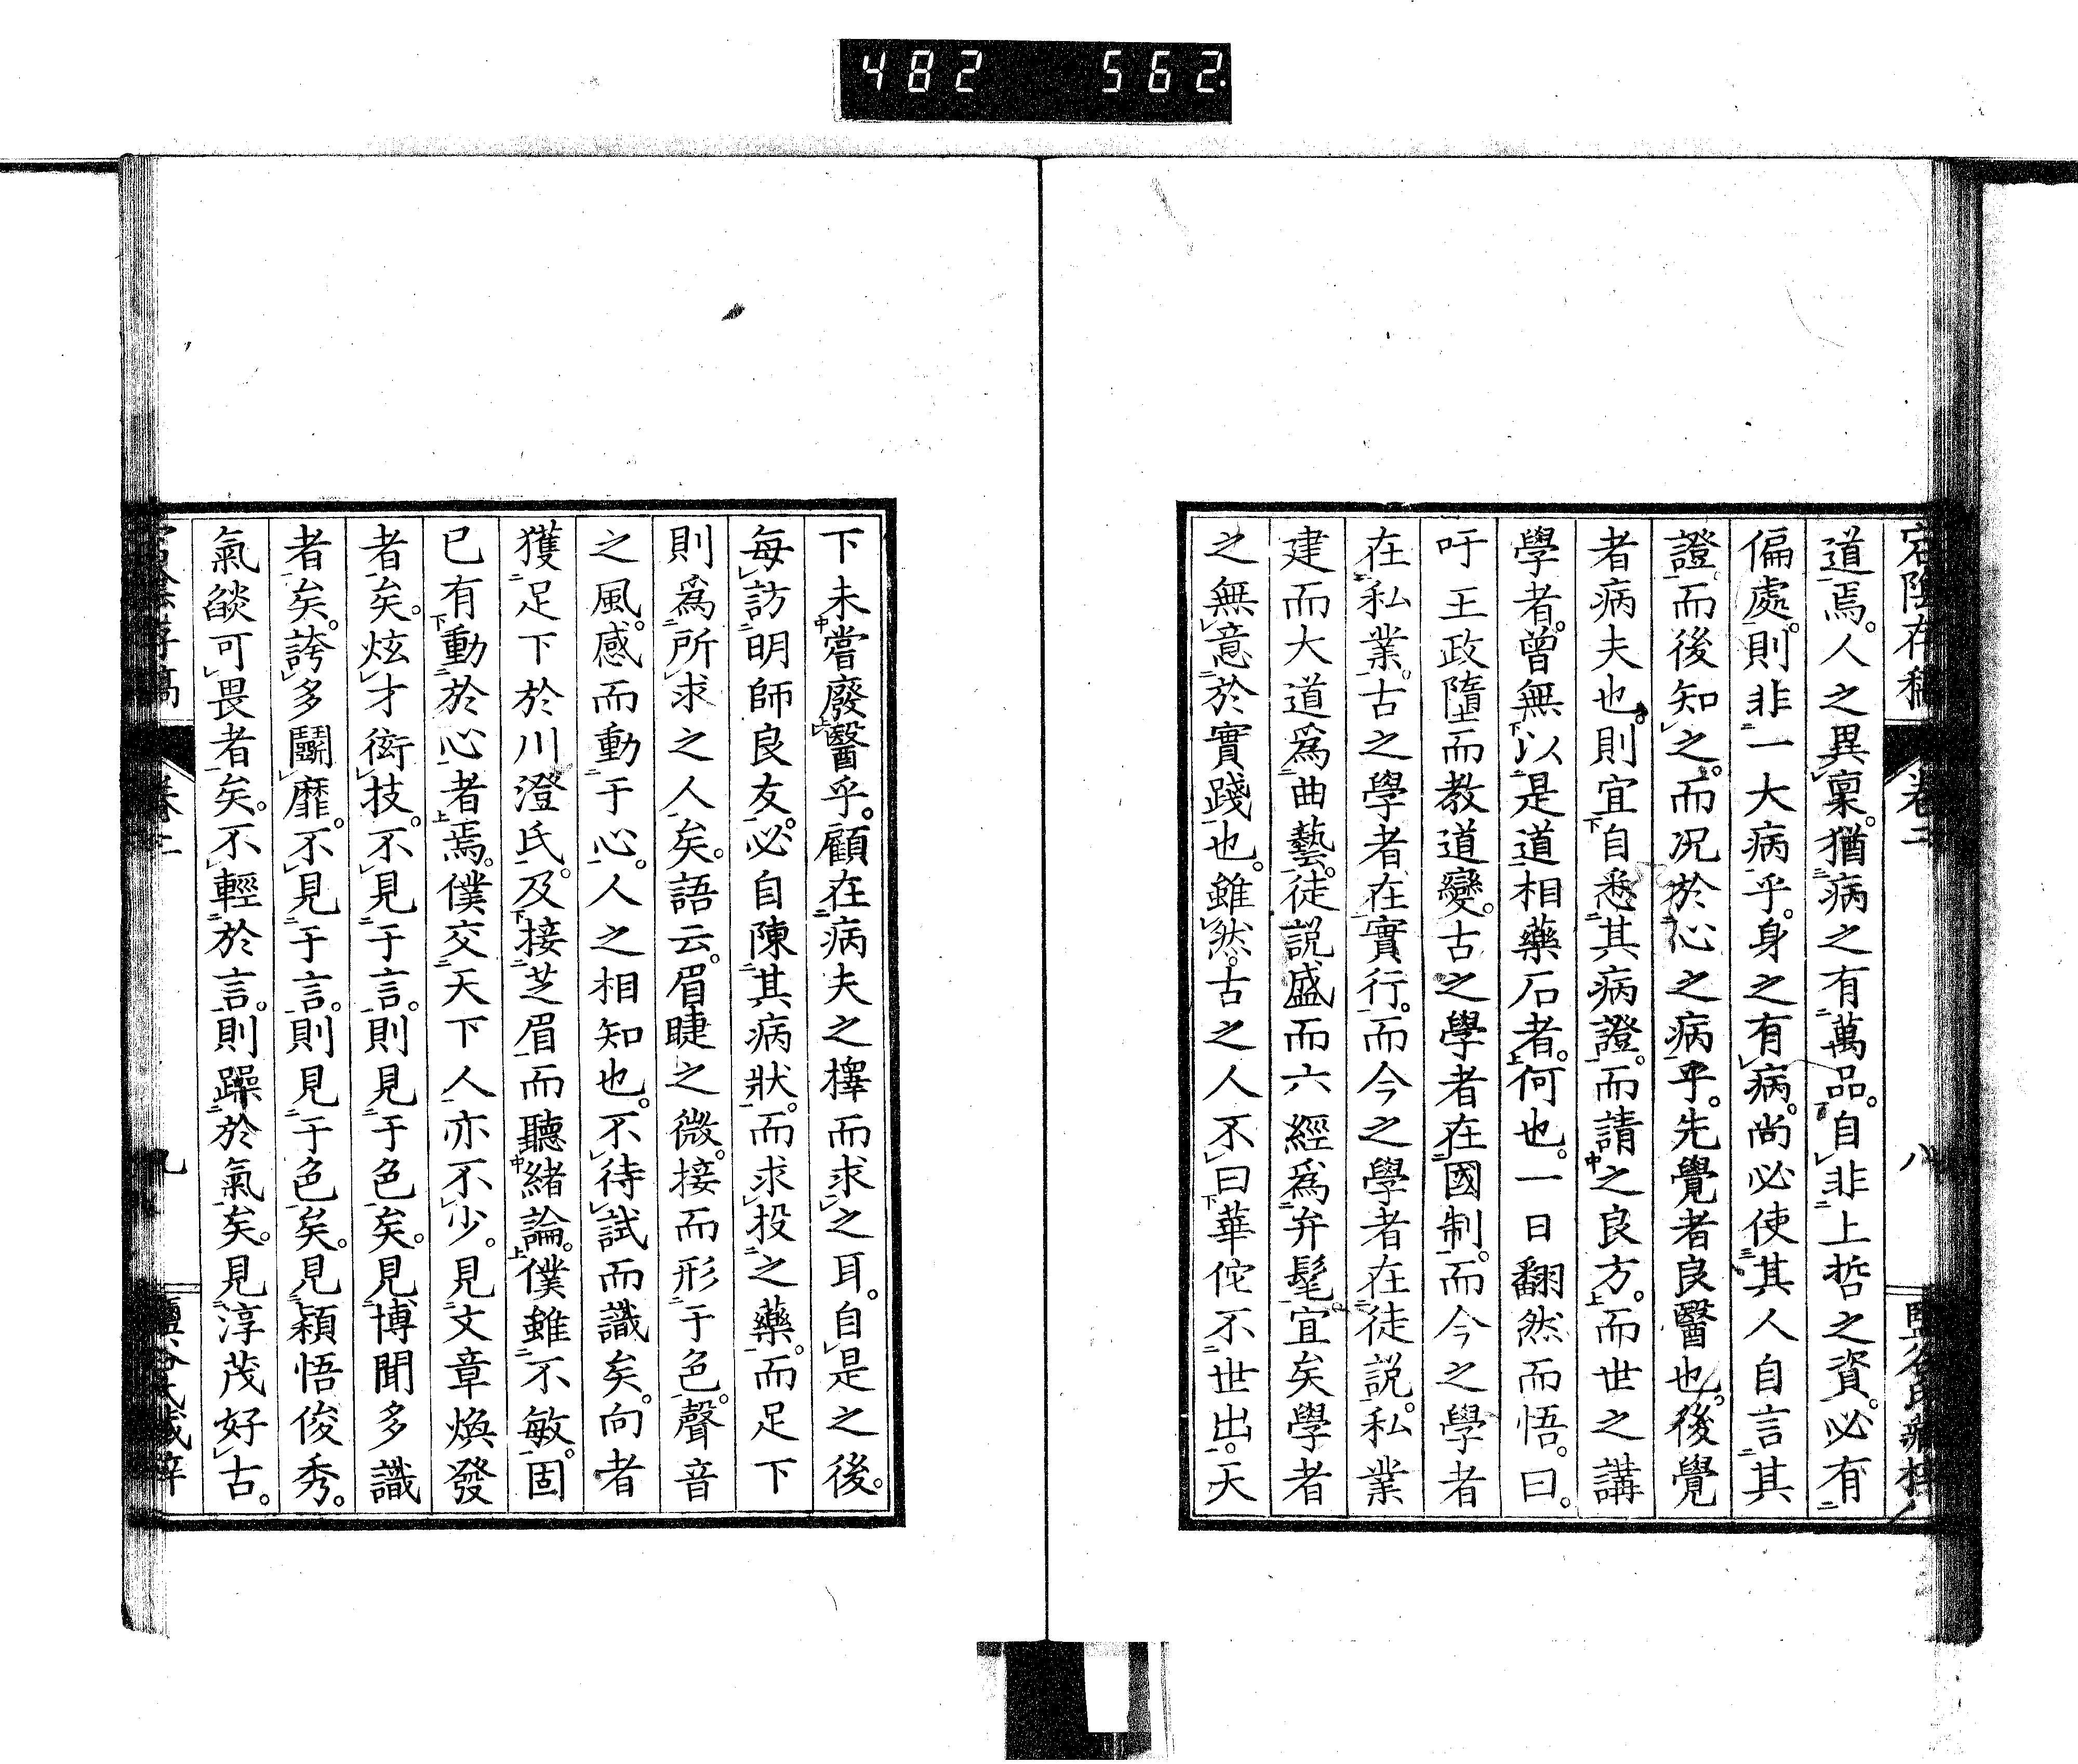 482 562
宕陰存稿 卷二 八
道焉。人之異稟。猶病之有萬品。自非上哲之資。必有
偏處。則非一大病乎。身之有病。尚必使其人自言其
證。而後知之。而況於心之病乎。先覺者良醫也。後覺
者病夫也。則宜自悉其病證。而請之良方。而世之講
學者。曾無以是道相藥石者。何也。一日翻然而悟。曰。
吁王政墮而教道變。古之學者在國制。而今之學者
在私業。古之學者在實行。而今之學者在徒説。私業
建而大道爲曲藝。徒説盛而六經爲弁髦。宜矣學者
之無意於實踐也。雖然。古之人不曰華佗不世出。天
下未嘗廢醫乎。顧在病夫之擇而求之耳。自是之後。
每訪明師良友。必自陳其病狀。而求投之藥。而足下
則爲所求之人矣。語云。眉睫之微。接而形于色。聲音
之風。感而動于心。人之相知也。不待試而識矣。向者
獲足下於川澄氏。及接芝眉而聽緒論。僕雖不敏。固
已有動於心者焉。僕交天下人亦不少。見文章煥發
者矣。炫才衒技。不見于言。則見于色矣。見博聞多識
者矣。誇多鬬靡。不見于言。則見于色矣。見穎悟俊秀。
氣燄可畏者矣。不輕於言。則躁於氣矣。見淳茂好古。
卷二 九